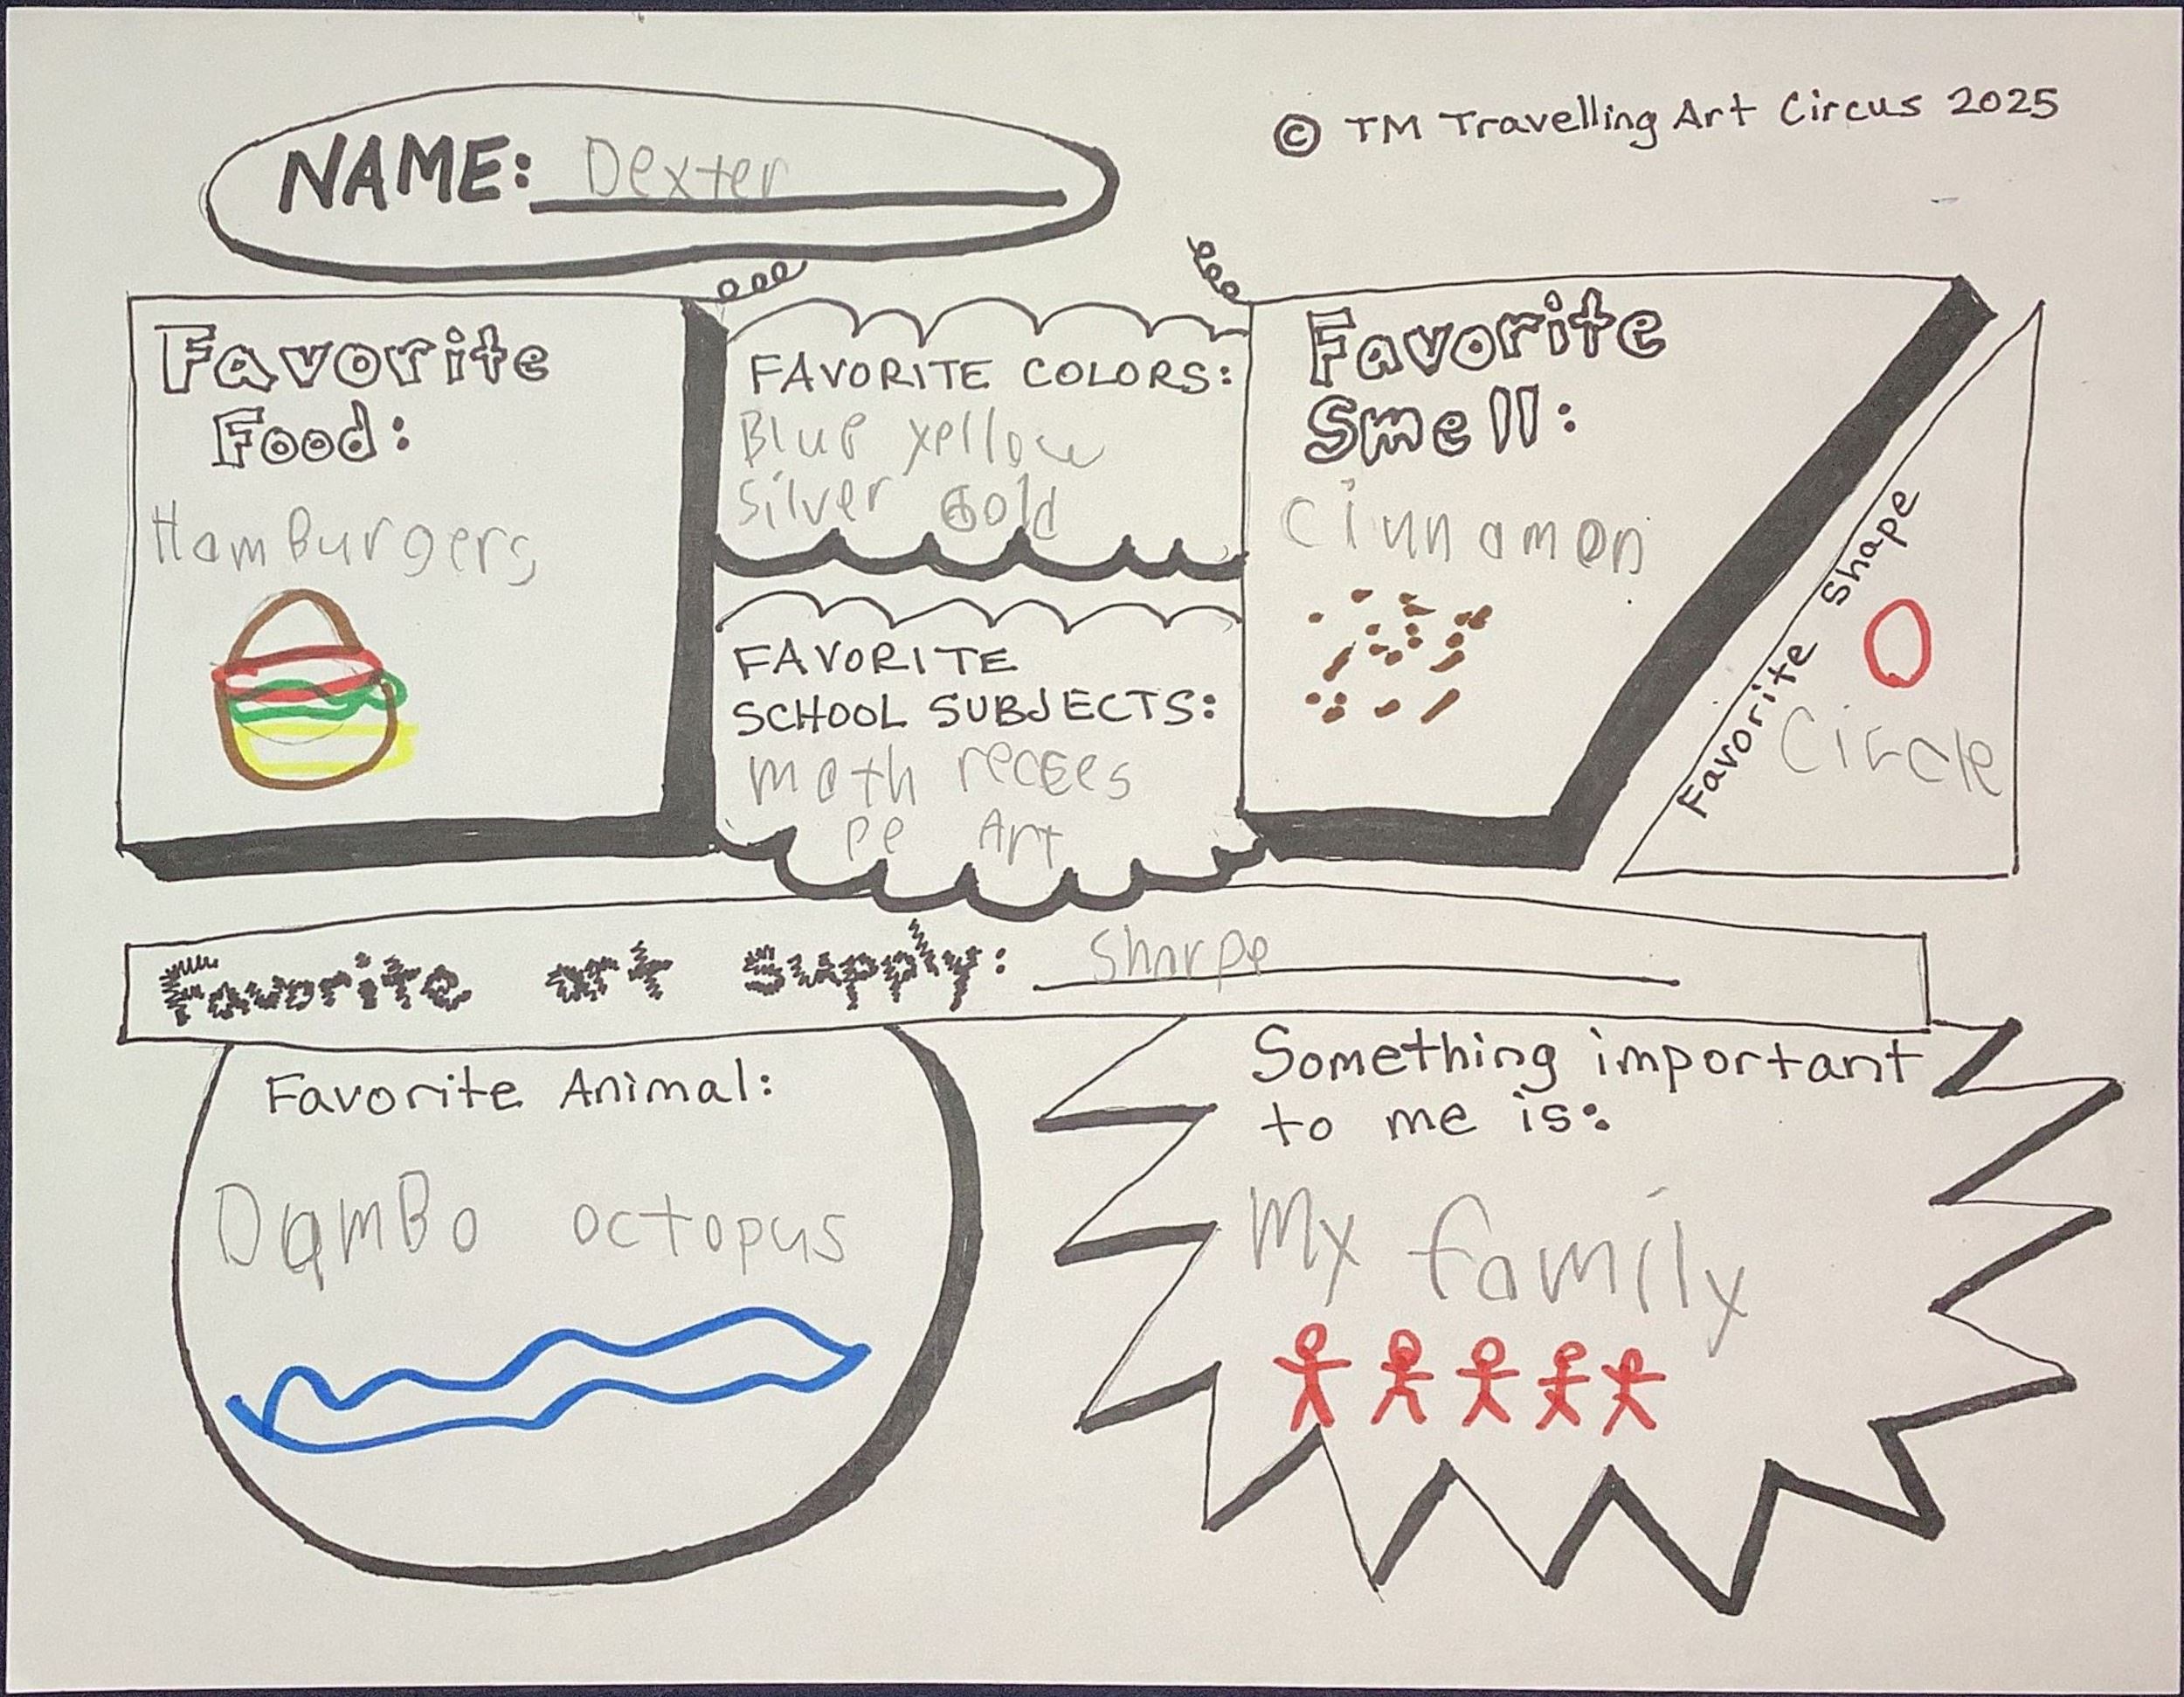 NAME: Dexter
© TM Travelling Art Circus 2025
Favorite
Food:
HamBurgers
FAVORITE COLORS:
Blue yellow
Silver Gold
FAVORITE
SCHOOL SUBJECTS:
math recees
pe Art
Favorite
Smell:
Cinnamon
Favorite Shape
Circle
Favorite art supply: Sharpe
Favorite Animal:
DamBo octopus
Something important
to me is:
My family